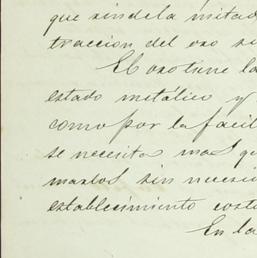 que sin de la mitad
traccion del oro se
El oro tiene la
estado metálico y
como por la facil
se necesita mas q
marlos sin necesi
establecimiento costo
En la